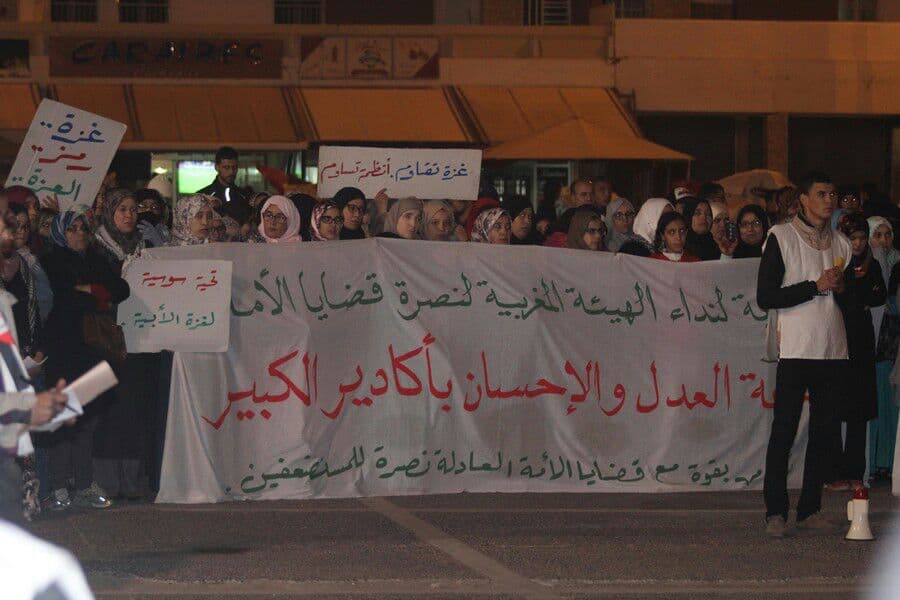 CARAIBES
غزة..
رمز..
العزة..
غزة تقاوم.. أنظمة تساوم
تحية سوسية
لغزة الأبية
لنداء الهيئة المغربية لنصرة قضايا الأمة
العدل والإحسان بأكادير الكبير
بقوة مع قضايا الأمة العادلة نصرة للمستضعفين.